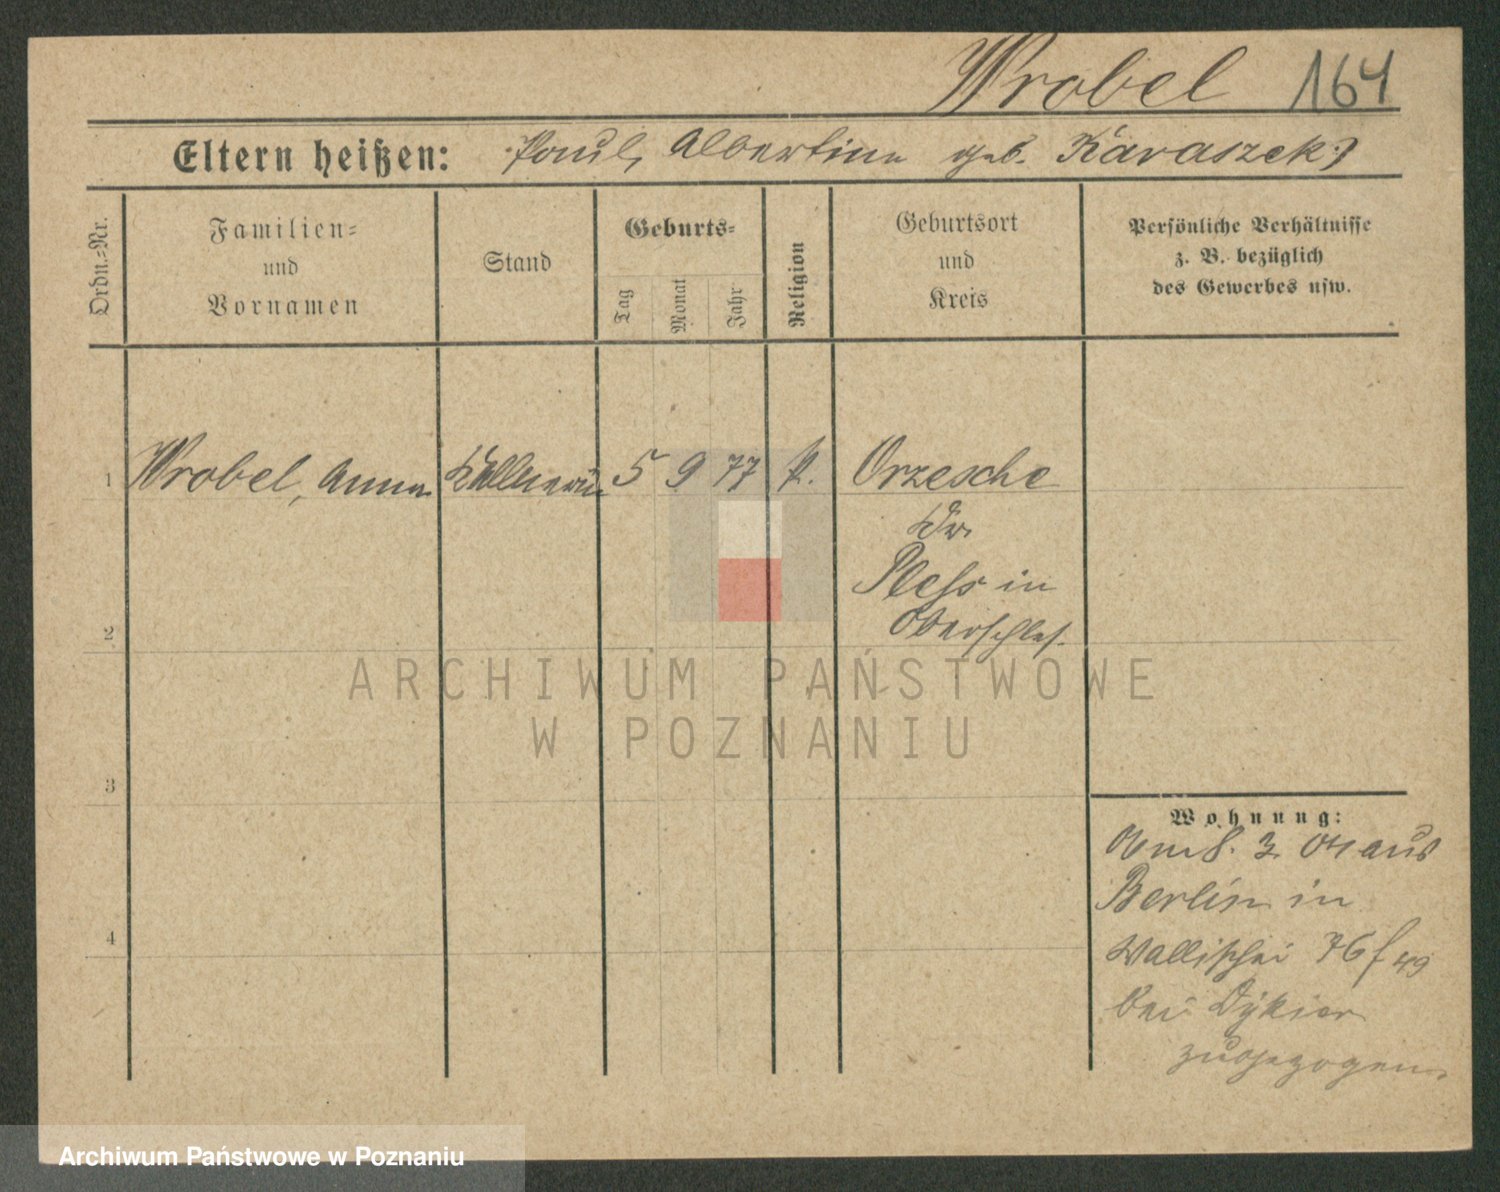 Wrobel 164
Eltern heißen: Paul, Albertine geb. Karaszek
Ordn.=Nr.
Familien=
und
Vornamen
Stand
Geburts=
Tag
Monat
Jahr
Religion
Geburtsort
und
Kreis
Persönliche Verhältnisse
z. B. bezüglich
des Gewerbes usw.
1 Wrobel, Anna Kellnerin 5 9 77 k. Orzesche
Kr.
Pleß in
Oberschles.
2
3
4
Wohnung:
3. 04 aus
Berlin in
Wallischei 76
bei Dykier
zugezogen
ARCHIWUM PAŃSTWOWE
W POZNANIU
Archiwum Państwowe w Poznaniu